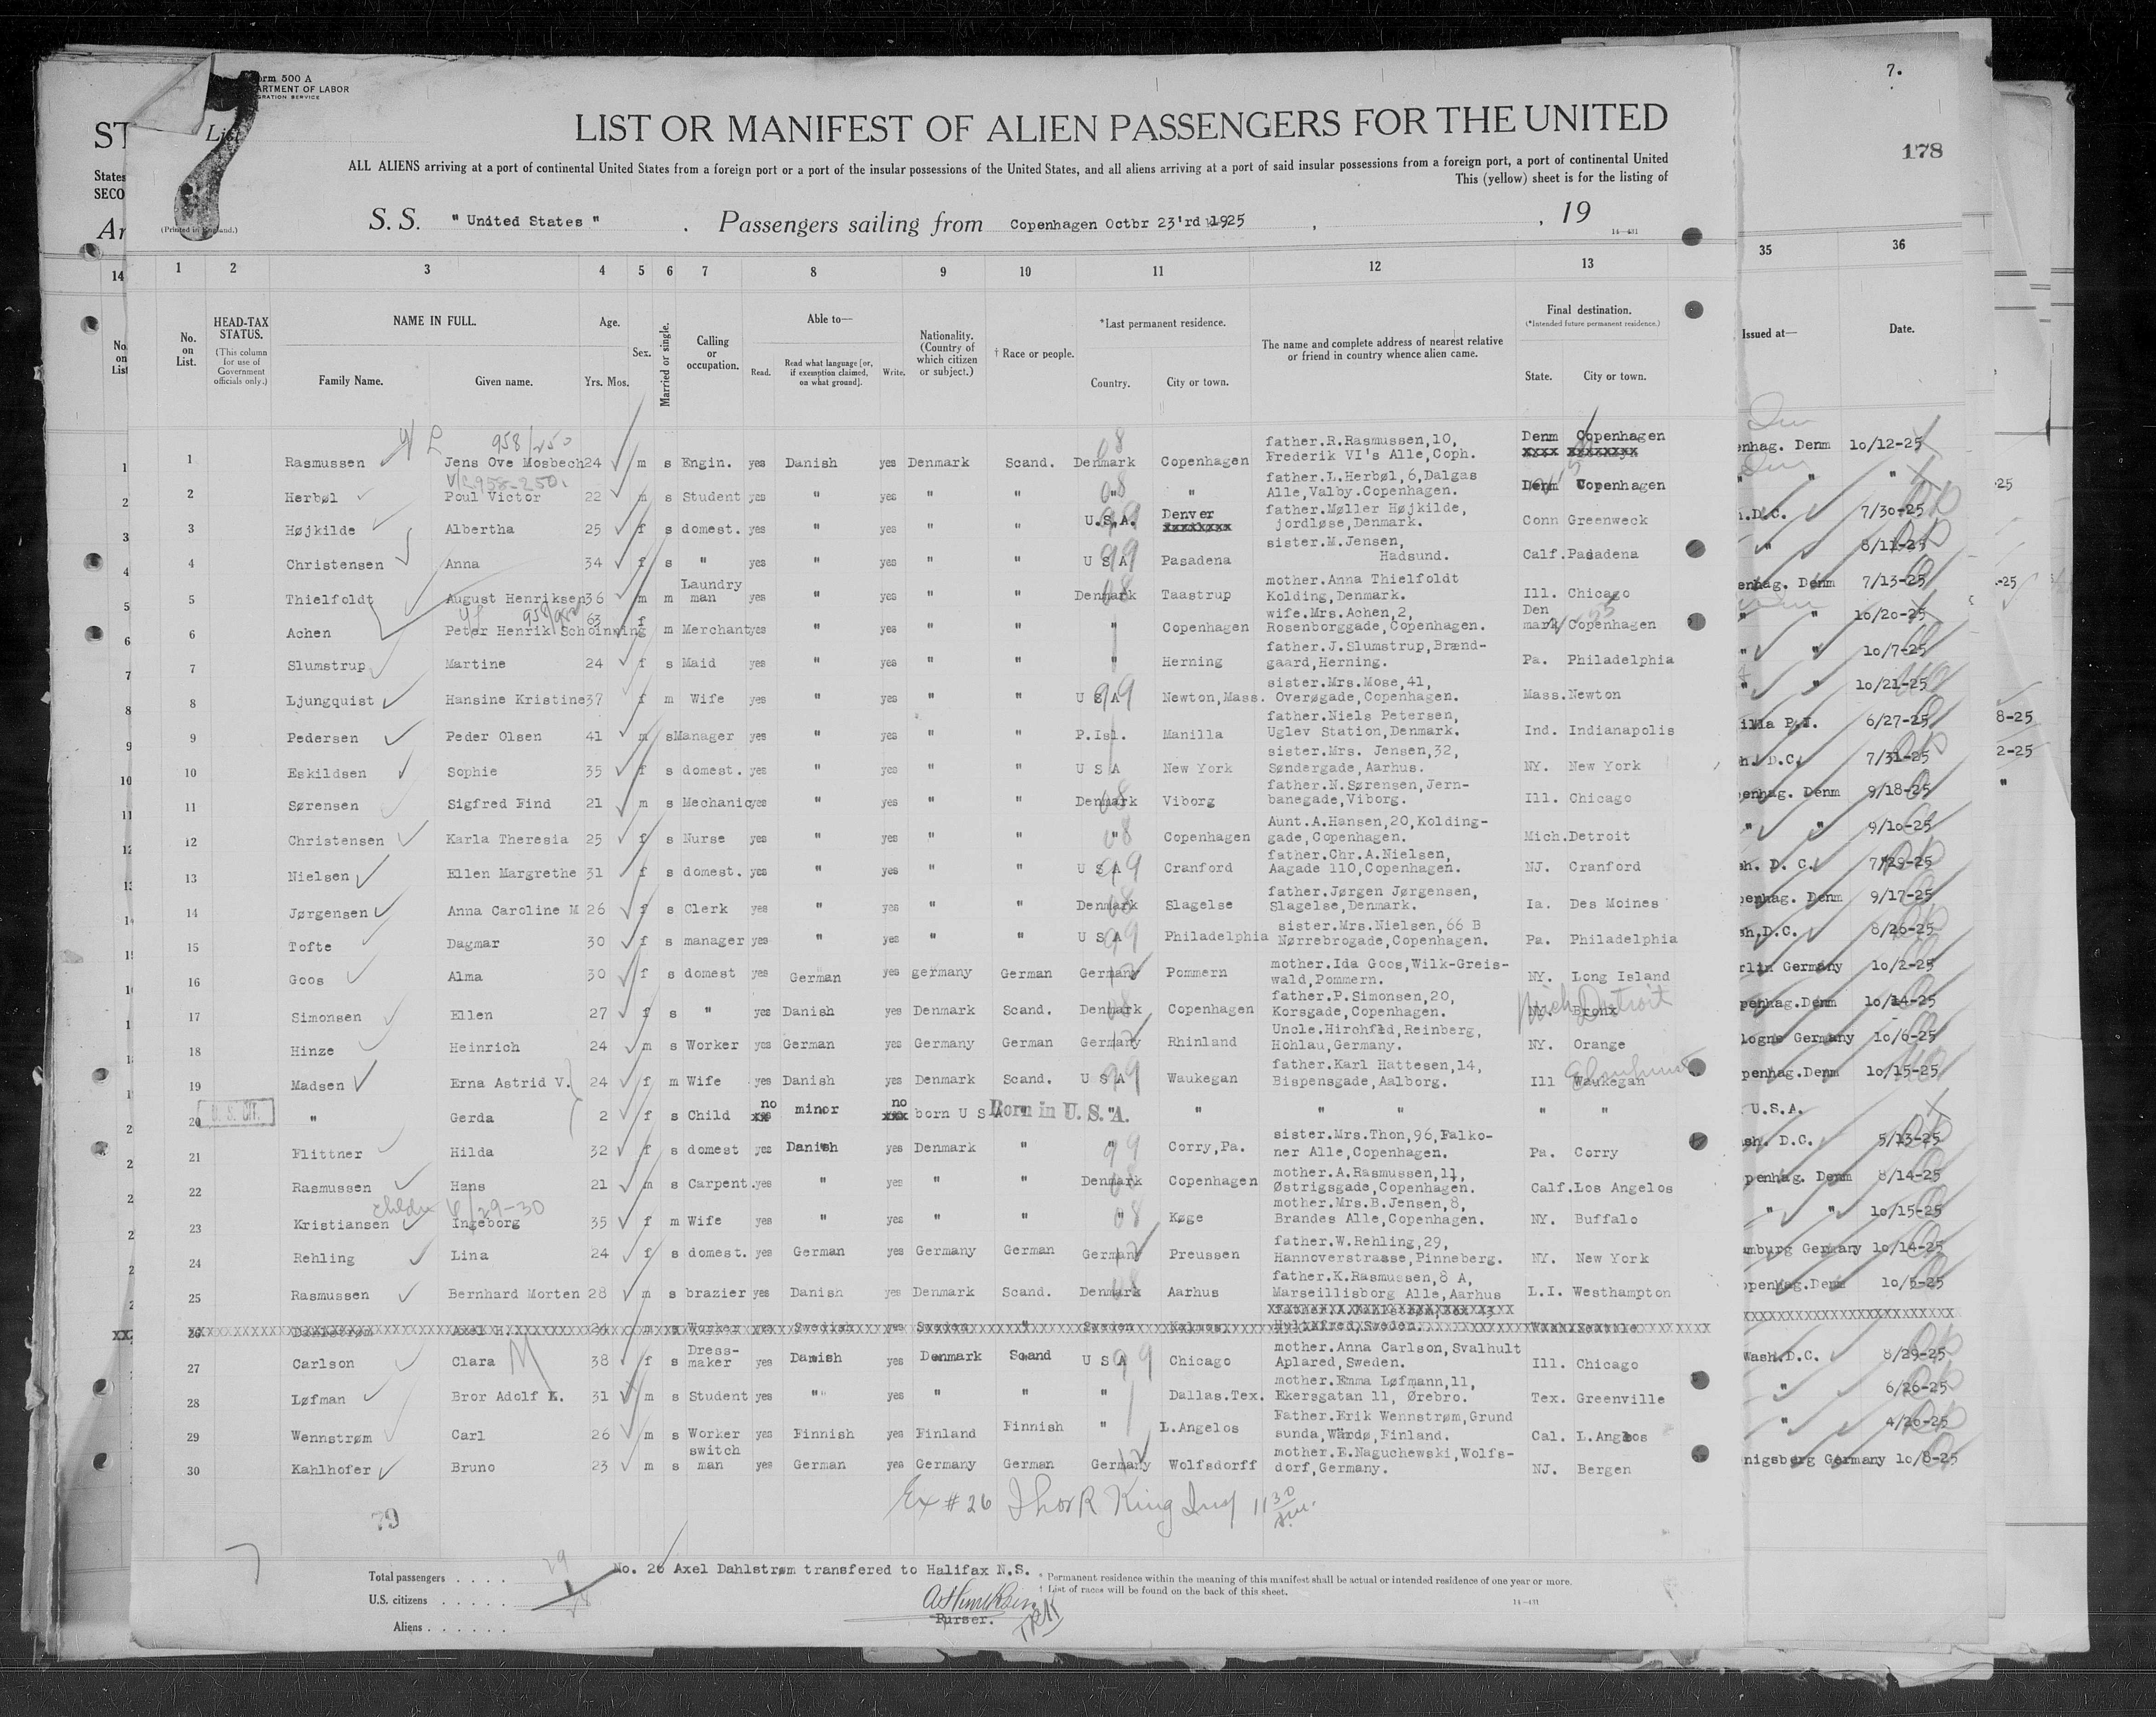 7.
Form 500 A
DEPARTMENT OF LABOR
IMMIGRATION SERVICE
List
7
LIST OR MANIFEST OF ALIEN PASSENGERS FOR THE UNITED
178
ALL ALIENS arriving at a port of continental United States from a foreign port or a port of the insular possessions of the United States, and all aliens arriving at a port of said insular possessions from a foreign port, a port of continental United
This (yellow) sheet is for the listing of
S. S. "United States" . Passengers sailing from Copenhagen Octbr 23'rd 1925 , , 19
(Printed in England.)
14—431
1 2 3 4 5 6 7 8 9 10 11 12 13 35 36
No. on List. HEAD-TAX STATUS. (This column for use of Government officials only.) NAME IN FULL. Family Name. Given name. Age. Yrs. Mos. Sex. Married or single. Calling or occupation. Able to— Read. Read what language [or, if exemption claimed, on what ground]. Write. Nationality. (Country of which citizen or subject.) † Race or people. *Last permanent residence. Country. City or town. The name and complete address of nearest relative or friend in country whence alien came. Final destination. (*Intended future permanent residence.) State. City or town. Issued at— Date.
958/250
1 Rasmussen Jens Ove Mosbech 24 m s Engin. yes Danish yes Denmark Scand. Denmark Copenhagen father.R.Rasmussen,10, Frederik VI's Alle,Coph. Denm Copenhagen enhag. Denm 10/12-25
958-250.
2 Herbøl Poul Victor 22 m s Student yes " yes " " " " father.L.Herbøl,6,Dalgas Alle,Valby.Copenhagen. Denm Copenhagen " " "
3 Højkilde Albertha 25 f s domest. yes " yes " " U.S.A. Denver father.Møller Højkilde, jordløse,Denmark. Conn Greenweck h.D.C. 7/30-25
4 Christensen Anna 34 f s " yes " yes " " U S A Pasadena sister.M.Jensen, Hadsund. Calf. Pasadena " 8/11-25
5 Thielfoldt August Henriksen 36 m m Laundry man yes " yes " " Denmark Taastrup mother.Anna Thielfoldt Kolding,Denmark. Ill. Chicago enhag. Denm 7/13-25
6 Achen Peter Henrik Schoinning 63 f m Merchant yes " yes " " " Copenhagen wife.Mrs.Achen,2, Rosenborggade,Copenhagen. Den mark Copenhagen " " 10/20-25
7 Slumstrup Martine 24 f s Maid yes " yes " " " Herning father.J.Slumstrup,Brænd- gaard,Herning. Pa. Philadelphia " " 10/7-25
8 Ljungquist Hansine Kristine 37 f m Wife yes " yes " " U S A Newton,Mass. sister.Mrs.Mose,41, Overøgade,Copenhagen. Mass. Newton " " 10/21-25
9 Pedersen Peder Olsen 41 m s Manager yes " yes " " P.Isl. Manilla father.Niels Petersen, Uglev Station,Denmark. Ind. Indianapolis illa P.I. 6/27-25
10 Eskildsen Sophie 35 f s domest. yes " yes " " U S A New York sister.Mrs. Jensen,32, Søndergade,Aarhus. NY. New York h. D.C. 7/31-25
11 Sørensen Sigfred Find 21 m s Mechanic yes " yes " " Denmark Viborg father.N.Sørensen,Jern- banegade,Viborg. Ill. Chicago penhag. Denm 9/18-25
12 Christensen Karla Theresia 25 f s Nurse yes " yes " " " Copenhagen Aunt.A.Hansen,20,Kolding- gade,Copenhagen. Mich. Detroit " " 9/10-25
13 Nielsen Ellen Margrethe 31 f s domest. yes " yes " " U S A Cranford father.Chr.A.Nielsen, Aagade 110,Copenhagen. NJ. Cranford sh. D. C. 7/29-25
14 Jørgensen Anna Caroline M 26 f s Clerk yes " yes " " Denmark Slagelse father.Jørgen Jørgensen, Slagelse,Denmark. Ia. Des Moines penhag. Denm 9/17-25
15 Tofte Dagmar 30 f s manager yes " yes " " U S A Philadelphia sister.Mrs.Nielsen,66 B Nørrebrogade,Copenhagen. Pa. Philadelphia sh.D.C. 8/26-25
16 Goos Alma 30 f s domest yes German yes germany German Germany Pommern mother.Ida Goos,Wilk-Greis- wald,Pommern. NY. Long Island rlin Germany 10/2-25
17 Simonsen Ellen 27 f s " yes Danish yes Denmark Scand. Denmark Copenhagen father.P.Simonsen,20, Korsgade,Copenhagen. NY. Bronx Mich Detroit penhag.Denm 10/14-25
18 Hinze Heinrich 24 m s Worker yes German yes Germany German Germany Rhinland Uncle.Hirchfld,Reinberg, Hohlau,Germany. NY. Orange logne Germany 10/6-25
19 Madsen Erna Astrid V. 24 f m Wife yes Danish yes Denmark Scand. U S A Waukegan father.Karl Hattesen,14, Bispensgade,Aalborg. Ill Waukegan Elmhurst penhag.Denm 10/15-25
20 U. S. CIT. " Gerda 2 f s Child no minor no born U S A Born in U. S. A. " " " " " " U.S.A.
21 Flittner Hilda 32 f s domest yes Danish yes Denmark " " Corry,Pa. sister.Mrs.Thon,96,Falko- ner Alle,Copenhagen. Pa. Corry sh. D.C. 5/13-25
22 Rasmussen Hans 21 m s Carpent. yes " yes " " Denmark Copenhagen mother.A.Rasmussen,11, Østrigsgade,Copenhagen. Calf. Los Angelos penhag. Denm 8/14-25
6/29-30
23 Kristiansen Ingeborg 35 f m Wife yes " yes " " " Køge mother.Mrs.B.Jensen,8, Brandes Alle,Copenhagen. NY. Buffalo " " 10/15-25
24 Rehling Lina 24 f s domest. yes German yes Germany German Germany Preussen father.W.Rehling,29, Hannoverstrasse,Pinneberg. NY. New York amburg Germany 10/14-25
25 Rasmussen Bernhard Morten 28 m s brazier yes Danish yes Denmark Scand. Denmark Aarhus father.K.Rasmussen,8 A, Marseillisborg Alle,Aarhus L.I. Westhampton openhag.Denm 10/5-25
26 Dahlstrøm Axel H. 24 m s Worker yes Swedish yes Sweden " Sweden Kalmos. Sweden.
27 Carlson Clara 38 f s Dress- maker yes Danish yes Denmark Scand U S A Chicago mother.Anna Carlson,Svalhult Aplared,Sweden. Ill. Chicago Wash.D.C. 8/29-25
28 Løfman Bror Adolf K. 31 m s Student yes " yes " " " Dallas.Tex. mother.Emma Løfmann,11, Ekersgatan 11, Ørebro. Tex. Greenville " 6/26-25
29 Wennstrøm Carl 26 m s Worker yes Finnish yes Finland Finnish " L.Angelos Father.Erik Wennstrøm,Grund sunda,Wärdø,Finland. Cal. L.Angelos " 4/26-25
30 Kahlhofer Bruno 23 m s switch man yes German yes Germany German Germany Wolfsdorff mother.E.Naguchewski,Wolfs- dorf,Germany. NJ. Bergen nigsberg Germany 10/8-25
Ex # 26 Thor R King Insp 11 30 am.
79
Total passengers . . . . 29
No. 26 Axel Dahlstrøm transfered to Halifax N.S.
* Permanent residence within the meaning of this manifest shall be actual or intended residence of one year or more.
† List of races will be found on the back of this sheet.
U.S. citizens . . . . . 1
14—431
Purser.
Aliens . . . . . .